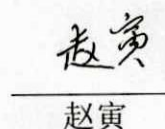 赵寅
赵寅